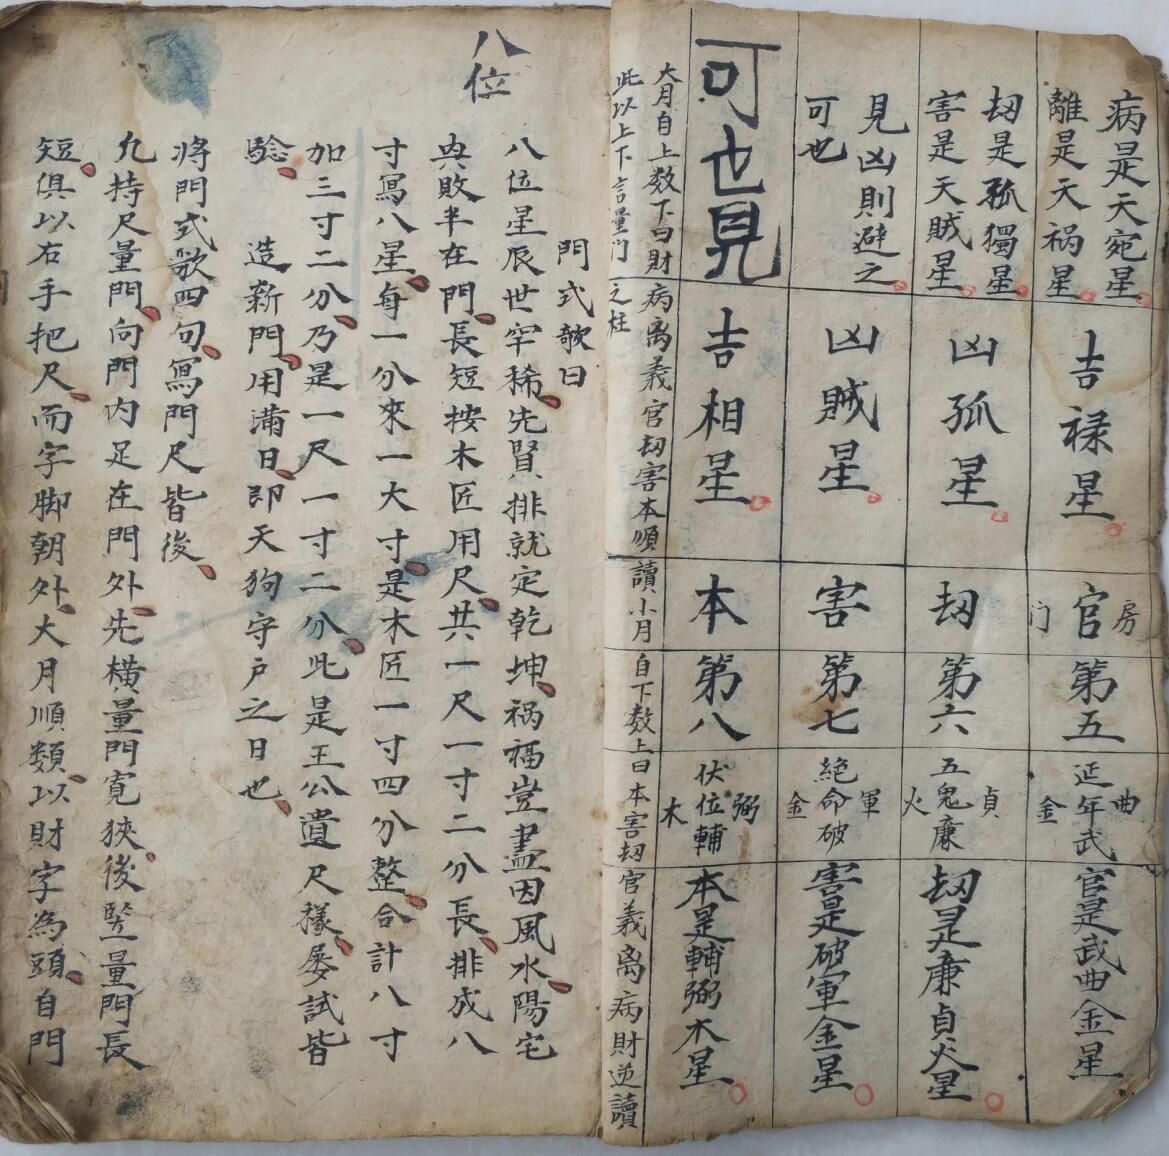 病是天宛星
離是天祸星
吉禄星
房官门
第五
曲延年武金
官是武曲金星
刼是孤獨星
害是天賊星
凶孤星
刼
第六
貞五鬼廉火
刼是廉貞火星
見凶則避之
可也
凶賊星
害
第七
軍絶命破金
害是破軍金星
可也見
吉相星
本
第八
弼伏位輔木
本是輔弼木星
大月自上数下曰財病离義官刼害本順讀小月自下数上曰本害刼官義离病財逆讀
此以上下言量门之柱
八位
門式歌曰
八位星辰世罕稀先賢排就定乾坤祸福豈盡因風水陽宅
與敗半在門長短按木匠用尺共一尺一寸二分長排成八
寸寫八星每一分來一大寸是木匠一寸四分整合計八寸
加三寸二分乃是一尺一寸二分此是王公遺尺樣屡試皆
驗 造新門用滿日即天狗守户之日也
將門式歌四句寫門尺皆後
九持尺量門向門内足在門外先橫量門寛狹後竪量門長
短俱以右手把尺而字脚朝外大月順類以財字為頭自門